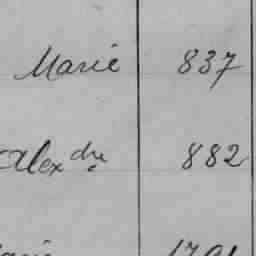 Marie 837
Alexdre 882